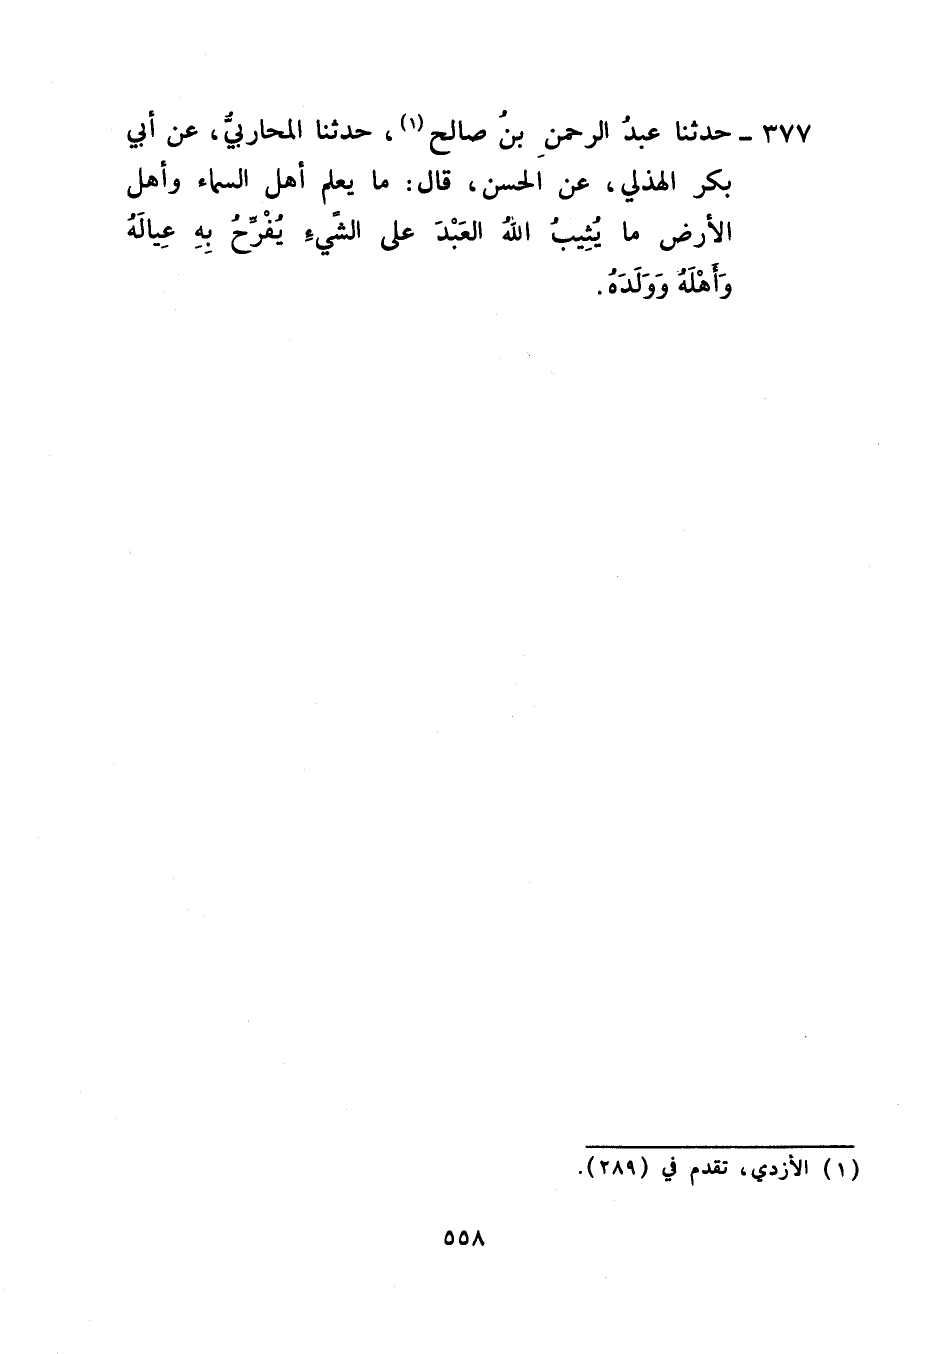 ٣٧٧ ـ حدثنا عبدُ الرحمن بنُ صالح(١)، حدثنا المحاربيُّ، عن أبي
بكر الهذلي، عن الحسن، قال: ما يعلم أهل السماء وأهل
الأرض ما يُثِيبُ اللهُ العَبْدَ على الشَّيءِ يُفْرِّحُ بِهِ عِيالَهُ
وَأَهْلَهُ وَوَلَدَهُ.
(١) الأزدي، تقدم في (٢٨٩).
٥٥٨